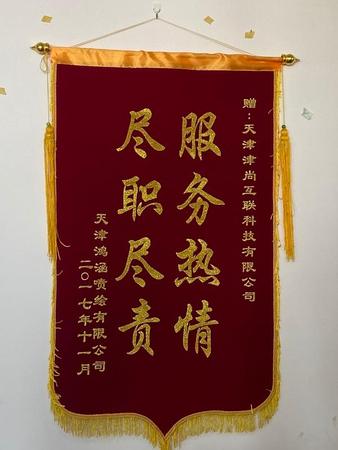 赠：天津津尚互联科技有限公司
服务热情
尽职尽责
天津鸿涵喷绘有限公司
二〇一七年十一月